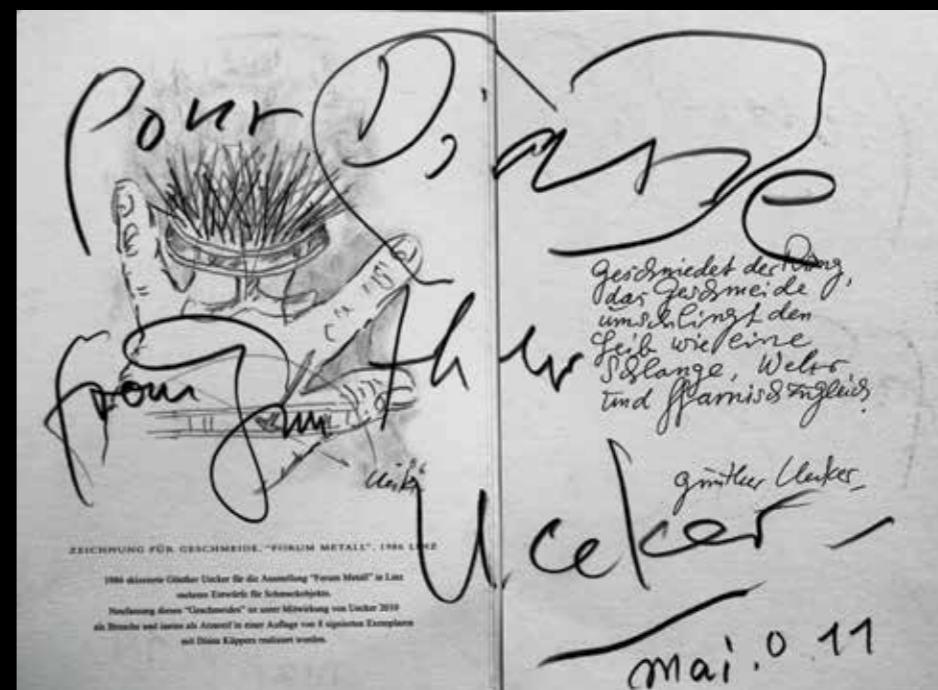 pour Diane
from Günther
Uecker
mai. 0 11
Geschmiedet der
das Geschmeide
umschlingt den
Leib wie eine
Schlange,
und Harnisch zugleich.
günther Uecker
Uecker
ZEICHNUNG FÜR GESCHMEIDE, "FORUM METALL", 1986 LINZ
1986 skizzierte Günther Uecker für die Ausstellung "Forum Metall" in Linz
mehrere Entwürfe für Schmuckobjekte.
Neufassung dieses "Geschmeides" ist unter Mitwirkung von Uecker 2010
als Brosche und als Armreif in einer Auflage von 8 signierten Exemplaren
mit Küppers realisiert worden.